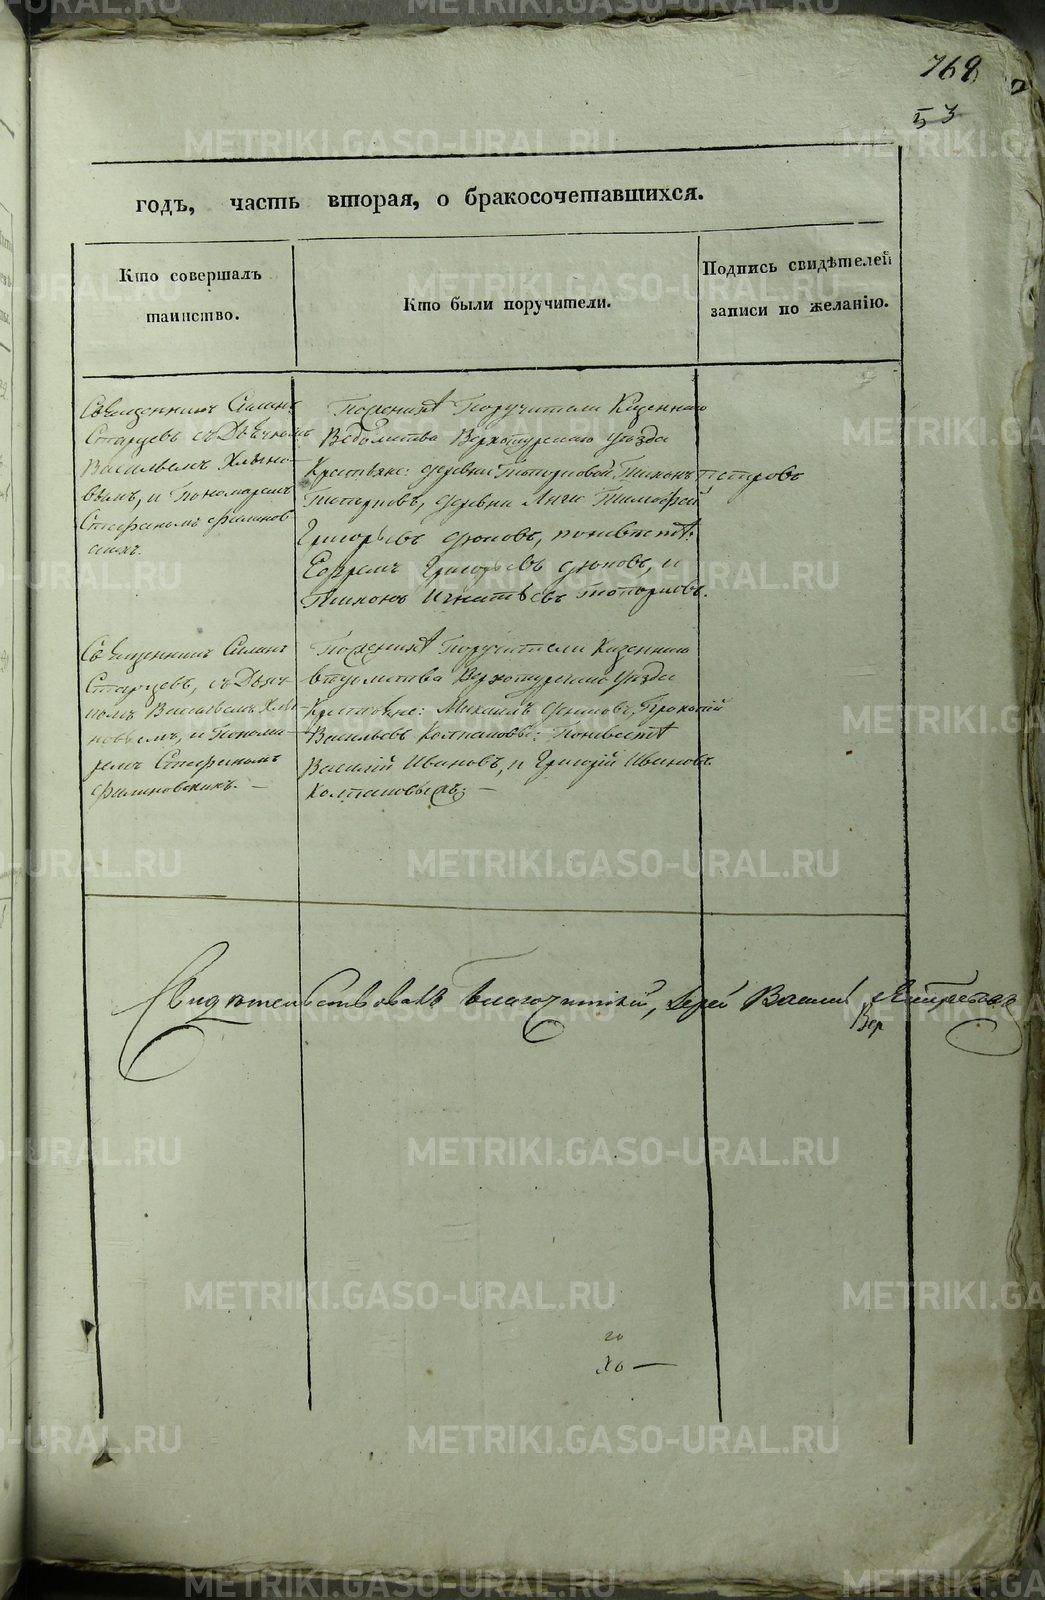 768
53
годъ, часть вторая, о бракосочетавшихся.
Кто совершалъ
таинство.
Кто были поручители.
Подпись свидѣтелей
записи по желанію.
Священникъ Симонъ
Старцевъ съ Дьячкомъ
Васильемъ Хлыно-
вымъ, и Пономаремъ
Стефаномъ Филинов-
скимъ.
По женихѣ Поручители Казеннаго
Ведомства Верхотурскаго уѣзда
Крестьяне: деревни Топорковой Тихонъ Петровъ
Топорковъ, деревни Тимофей
Григорьевъ по невѣстѣ:
Ефремъ Григорьевъ и
Тихонъ Игнатьевъ Топорковъ.
Священникъ Симонъ
Старцевъ, съ Дьяч-
комъ Васильемъ Хлы-
новымъ, и Понома-
ремъ Стефаномъ
Филиновскимъ.
По женихѣ Поручители Казеннаго
ведомства Верхотурскаго уѣзда
Крестьяне: Михаилъ Прокопій
Васильевъ Колтаковы: По невѣстѣ
Василій Ивановъ, и Григорій Ивановъ
Свидѣтельствовалъ Благочинный, Іерей Василій
Вер
METRIKI.GASO-URAL.RU